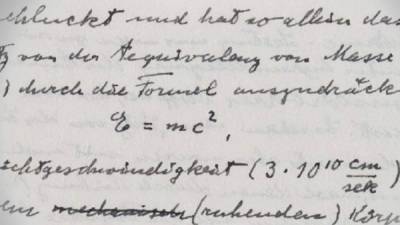 chluckt und hat so allein das
von der Aequivalenz von Masse
) durch die Formel auszudrück
E = mc²,
ichtgeschwindigkeit (3 · 10¹⁰ cm/sek)
ens mechanisch (ruhenden) Körp